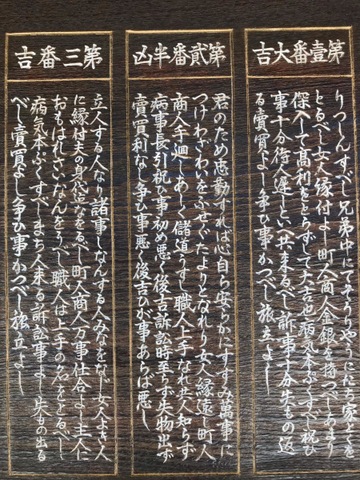 第壹番大吉
りつしんすべし兄弟中にてもうりやうにんたち家とくを
とるべし女人縁付よし町人商人金銀を持つべしあまり
保人して高利をとらずして大吉也病気本ぷくすべし祝ひ
事十分待人遅しいへ共来るべし訴事十分失もの返
る賣買よし争ひ事かつべし旅立よし
第貳番半凶
君のため忠勤すれば心自ら安らかにすすみ萬事に
つけわざわいをふせぐたよりとなれり女人縁遠し町人
商人手廻しあし儲道うすし職人上手なれ共人知らず
病事長引祝ひ事初め悪く後吉訴訟時至らず失物出ず
賣買利なし争ひ事悪く後吉ひが事あらば悪し
第三番吉
立人する人なり諸事しなんする人みなをなびく女人よき人
に縁付夫の身代富なをるべし町人商人万事仕合よし主人に
おもはれさいなんをのぶべし職人は上手の名をとるべし
病気本ぷくすべしまち人来る訴訟事よし失もの出る
べし賣買よし争ひ事かつべし旅立よし